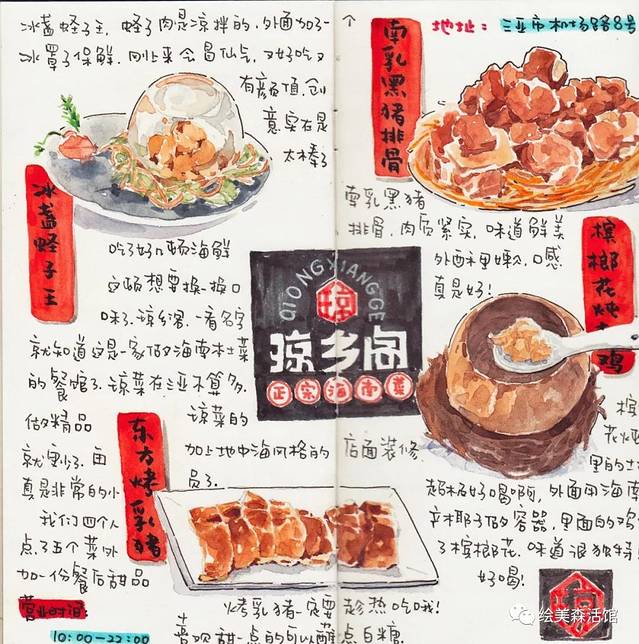 冰盖蛏子王，蛏子肉是凉拌的，外面加了一
冰罩子保鲜，刚上来会冒仙气，又好吃又
有颜值，创
意实在是
太棒了
冰盖蛏子王
吃了好几顿海鲜
这顿想要换一换口
味了。琼乡阁，一看名字
就知道这是一家做海南本土菜
的餐馆了。琼菜在三亚不算多，
做精品
琼菜的
就更少了。
加上地中海风格的
店面装修，
真是非常的小
我们四个人
点了五个菜外
加一份餐后甜品
营业时间:
10:00-22:00
东方烤乳猪
烤乳猪一定要
趁热吃哦!
喜欢甜一点的可以蘸
点白糖
QIONGXIANGGE
琼
琼乡阁
正宗海南菜
南乳黑猪排骨
地址:
三亚市机场路8号
南乳黑猪
排骨，肉质紧实，味道鲜美
外酥里嫩，口感
真是好!
槟榔花炖
鸡
槟
花炖
里的土
超级好喝啊，外面用海南
产椰子做的容器，里面的鸡
了槟榔花，味道很独特!
好喝!
绘美森活馆